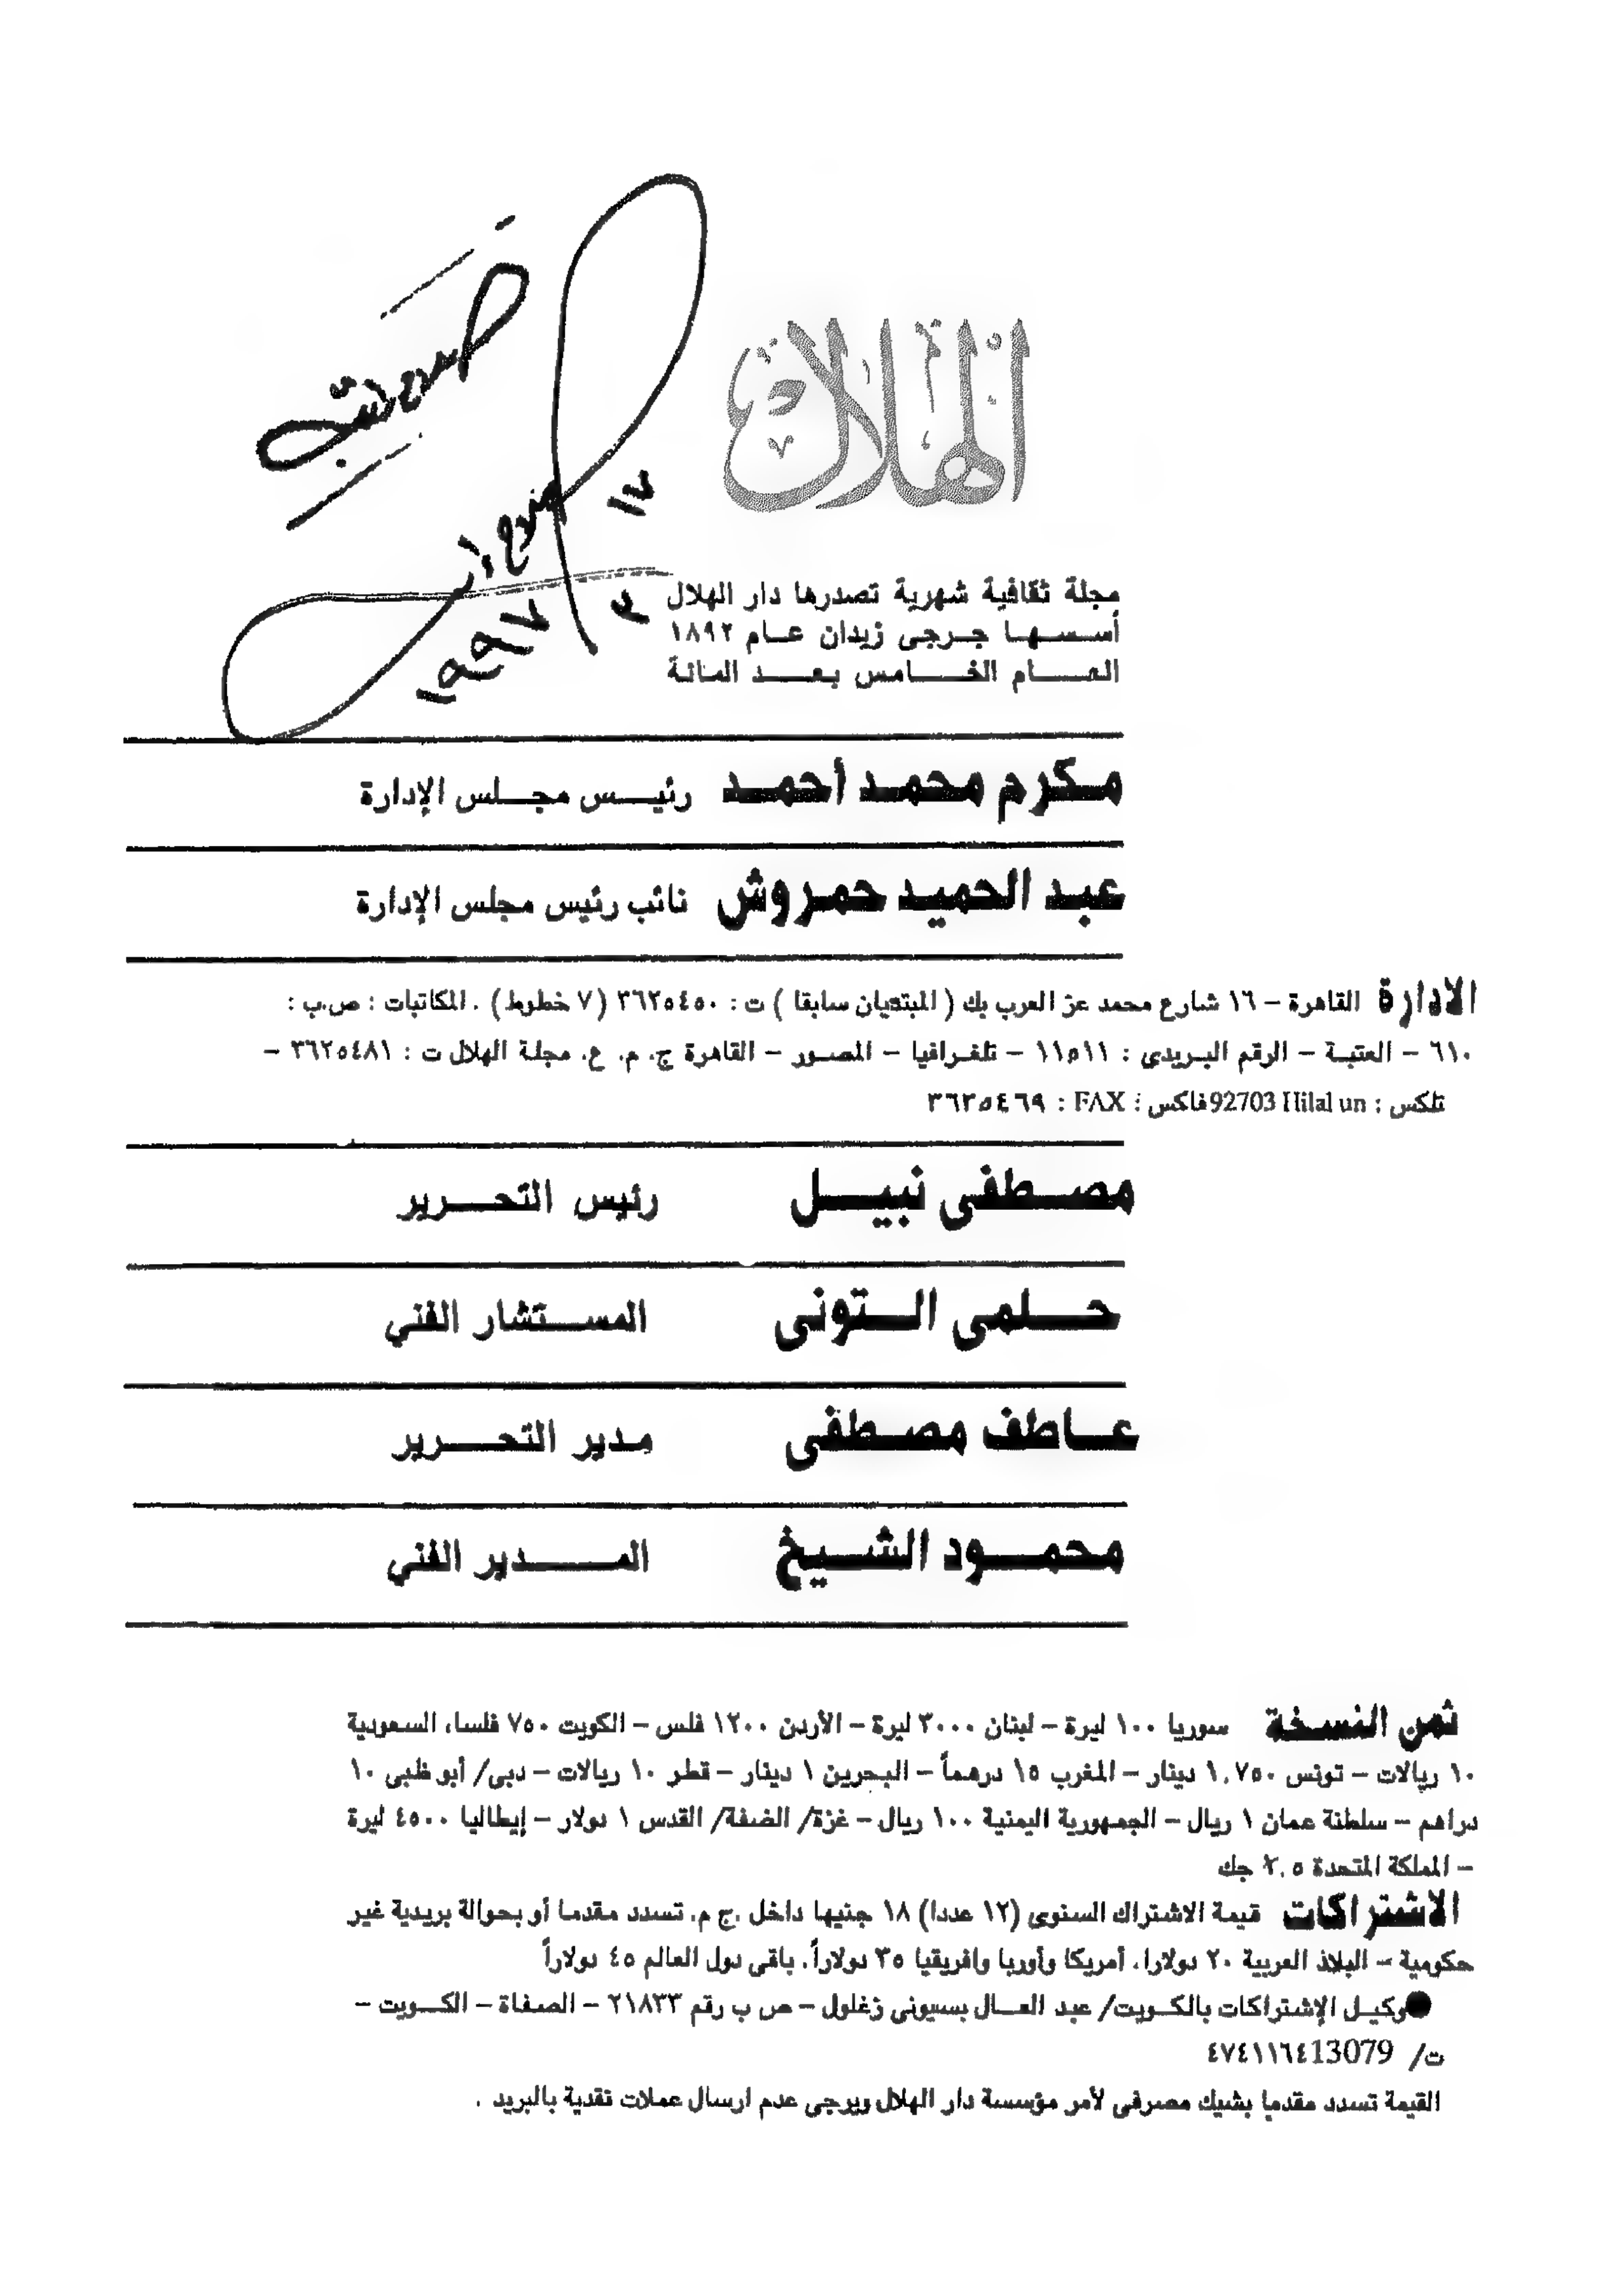 الهلال
١٧
٣
١٩٩٧
مجلة ثقافية شهرية تصدرها دار الهلال
أسسها جرجى زيدان عام ١٨٩٢
العام الخامس بعد المائة
مكرم محمد أحمد رئيس مجلس الإدارة
عبد الحميد حمروش نائب رئيس مجلس الإدارة
الادارة القاهرة – ١٦ شارع محمد عز العرب بك ( المبتديان سابقا ) ت : ٣٦٢٥٤٥٠ (٧ خطوط) . المكاتبات : ص.ب :
٦١٠ – العتبة – الرقم البريدى : ١١٥١١ – تلغرافيا – المصور – القاهرة ج. م. ع. مجلة الهلال ت : ٣٦٢٥٤٨١ –
تلكس : 92703 Hilal un فاكس : FAX : ٣٦٢٥٤٦٩
مصطفى نبيل رئيس التحرير
حلمى التونى المستشار الفني
عاطف مصطفى مدير التحرير
محمود الشيخ المدير الفني
ثمن النسخة سوريا ١٠٠ ليرة – لبنان ٣٠٠٠ ليرة – الأردن ١٢٠٠ فلس – الكويت ٧٥٠ فلسا، السعودية
١٠ ريالات – تونس ١,٧٥٠ دينار – المغرب ١٥ درهماً – البحرين ١ دينار – قطر ١٠ ريالات – دبى/ أبو ظبى ١٠
دراهم – سلطنة عمان ١ ريال – الجمهورية اليمنية ١٠٠ ريال – غزة/ الضفة/ القدس ١ دولار – إيطاليا ٤٥٠٠ ليرة
– المملكة المتحدة ٢,٥ جك
الاشتراكات قيمة الاشتراك السنوى (١٢ عددا) ١٨ جنيها داخل ج.م. تسدد مقدما أو بحوالة بريدية غير
حكومية – البلاد العربية ٢٠ دولارا، أمريكا وأوربا وافريقيا ٣٥ دولاراً، باقى دول العالم ٤٥ دولاراً
● وكيل الإشتراكات بالكويت/ عبد العال بسيونى زغلول – ص ب رقم ٢١٨٣٣ – الصفاة – الكويت –
ت/ 13079 ٤٧٤١١٦٤
القيمة تسدد مقدما بشيك مصرفى لأمر مؤسسة دار الهلال ويرجى عدم ارسال عملات نقدية بالبريد .